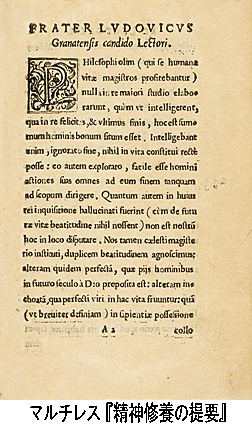 FRATER LVDOVICVS
Granatensis candido Lectori.
PHilosophi olim (qui se humanæ
vitæ magistros profitebantur)
nulla in re maiori studio elabo-
rarunt, quàm vt intelligerent,
qua in re felicitas, & vltimus finis, hoc est sum-
mum hominis bonum situm esset. Intelligebant
enim, ignorato fine, nihil in vita constitui recte
posse: eo autem explorato, facile esse homini
actiones suas omnes ad eum finem tanquam
ad scopum dirigere. Quantum autem in huius
rei inquisitione hallucinati fuerint (cùm de futu
ræ vitæ beatitudine nihil nossent) non est nostrū
hoc in loco disputare. Nos tamen cælesti magiste
rio instituti, duplicem beatitudinem agnoscimus;
alteram quidem perfectā, quæ pijs hominibus
in futuro sèculo à Deo proposita est: alteram in-
choatā, qua perfecti viri in hac vita fruuntur: quæ
(vt breuiter definiam) in sapientiæ possessione
A 2 collo
マルチレス『精神修養の提要』